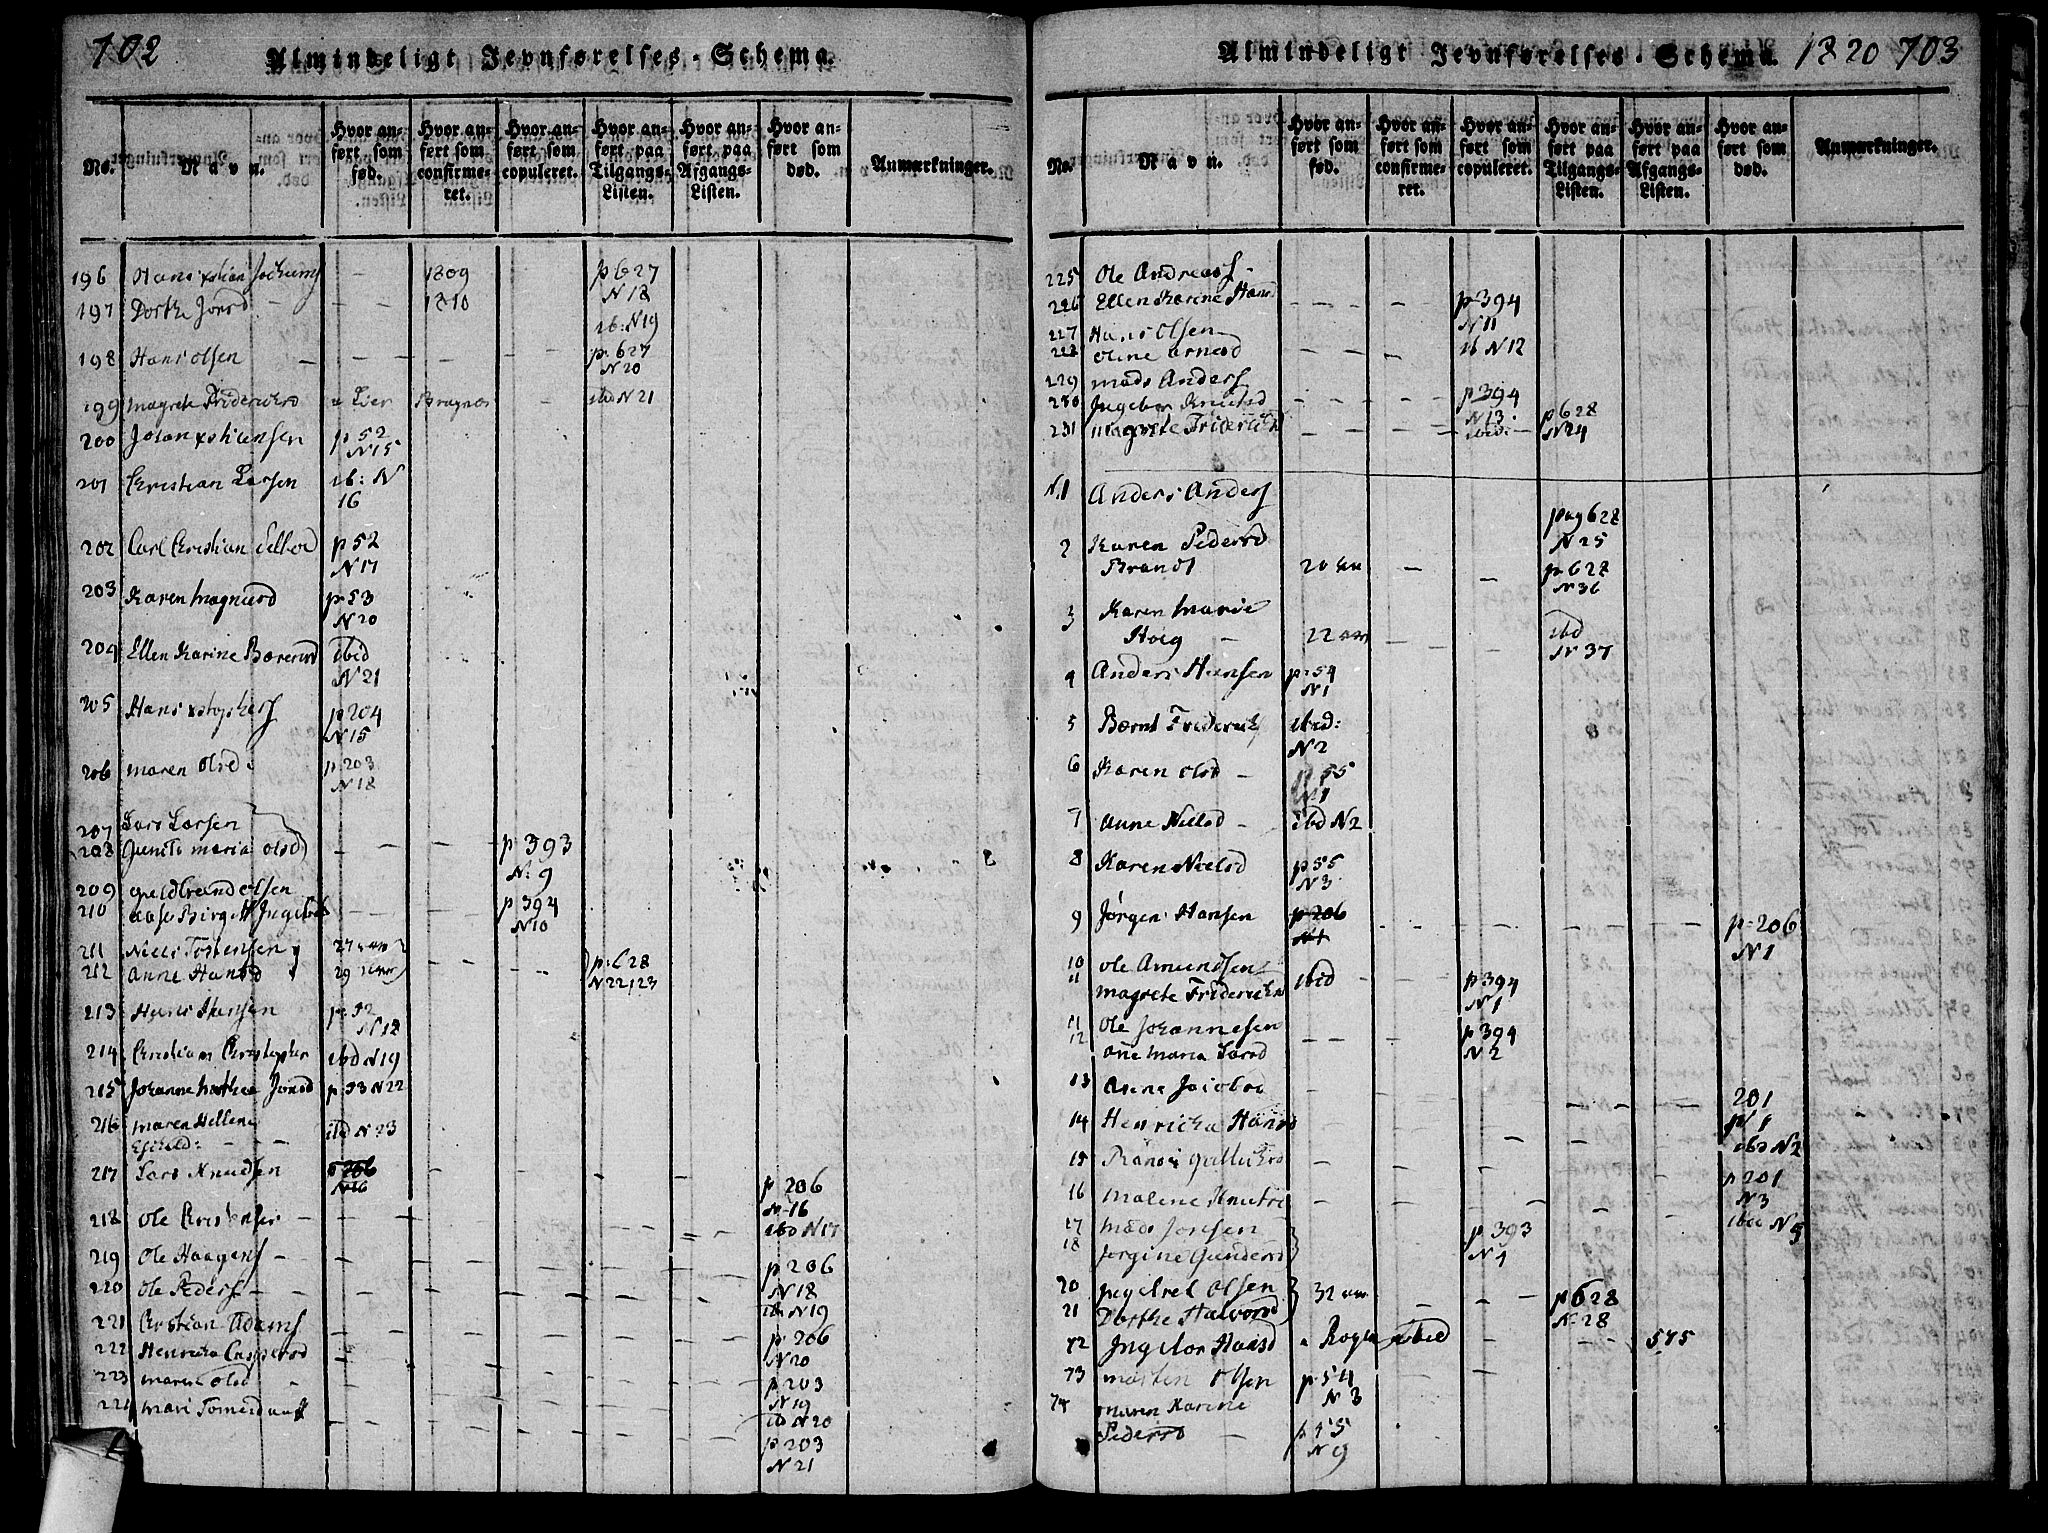 702
Almindeligt Jevnførelses-Schema.
No.
Navn.
Hvor anført som fød.
Hvor anført som confirmeret.
Hvor anført som copuleret.
Hvor anført paa Tilgangs-Listen.
Hvor anført paa Afgangs-Listen.
Hvor anført som død.
Anmærkninger.
196 Hans xstian Jochums — 1809 — p 627 N 18
197 Dorthe Jonsd — — 1810 ib: N19
198 Hans Olsen — — — — p. 627 N 20
199 Magrete Friderichsd a Lier Bragnæs — ibd N 21
200 Johan xstiansen p 52 N15
201 Christian Larsen ib: N 16
202 Carl Christian p 52 N17
203 Karen Magnusd p 53 N 20
204 Ellen Karine Berentsd ibid N 21
205 Hans xstophers p 204 N15
206 Maren Olsd: p. 203 N 18
207 Lars Larsen
208 Gunild Maria Olsd — — — p 393 N. 9
209 Guldbrand Olsen
210 Aase Birgit Ingebr — — p 394 N10
211 Niels Tostensen 27
212 Anne Hansd 29 — — — p. 628 N 22, 23
213 Hans Hansen p. 52 N 18
214 Christian Christopher ibd N19
215 Johanne Mathea Jonsd p. 53 N 22
216 Maren Hellene
ibd N 23
217 Lars Knudsen p 206 N16 — — — — p 206 N. 16
218 Ole Christenser — — — — — — ibd N 17
219 Ole Haagens — — — — — — p 206 N 18
220 Ole Peders — — — — — — — ib N 19
221 Cristian Adams — — — — — p. 206 N 20
222 Henricka Caspersd — — — — — p 203 N 19
223 Maren Olsd — — — — — ib N 20
224 Mari Tomesd — — — — — p 203 N 21
Almindeligt Jevnførelses-Schema. 1820 703
No.
Navn.
Hvor anført som fød.
Hvor anført som confirmeret.
Hvor anført som copuleret.
Hvor anført paa Tilgangs-Listen.
Hvor anført paa Afgangs-Listen.
Hvor anført som død.
Anmærkninger.
225 Ole Andreas
226 Ellen Karine Hansd — — — — p 394 N 11
227 Hans Olsen
228 Oline Arnesd — — — ib N 12
229 Mads Anders
230 Ingebor Knutsd — — — — p 394 N 13.
231 Magrete Friderichsd — — — — ibid: p 628 N 24
N. 1 Anders Anders pag 628 N 25
2 Karen Pedersd
Brandt 20 aar — — p 628 N 36
3 Karen Marie
Hoeg — 22 aar — — ibd N 37
4 Anders Hansen p. 54 N 1
5 Bernt Friderich ibid: N 2
6 Karen Olsd — p 55 N 1
7 Anne Nielsd — ibd N 2
8 Karen Nielsd p 55 N 3
9 Jørgen Hansen p 206 N 1 — — — — p. 206 N 1
10 Ole Amundsen
11 Magrete Friderichsd ibid — — p 394 N 1
11 Ole Johannesen
12 Ane Maria Larsd — — p 394 N 2
13 Anne Jacobsd — — — — 201 N 1
14 Henricka Hansd — — — — ibd N 2
15 — — — — p 201 N 3
16 Malene Knutsd — — — — — ibid N 5
17 Mads Jonsen
18 Jørgine Gundersd — — p 393 N 4
20 Ingebret Olsen
21 Dorthe Halvorsd 32 aar — — — p 628 N. 28
72 Ingebor Hansd a ibid — — 575
73 Morten Olsen p 54 N 3
74 Maren Karine
Pedersd — p 55 N 9